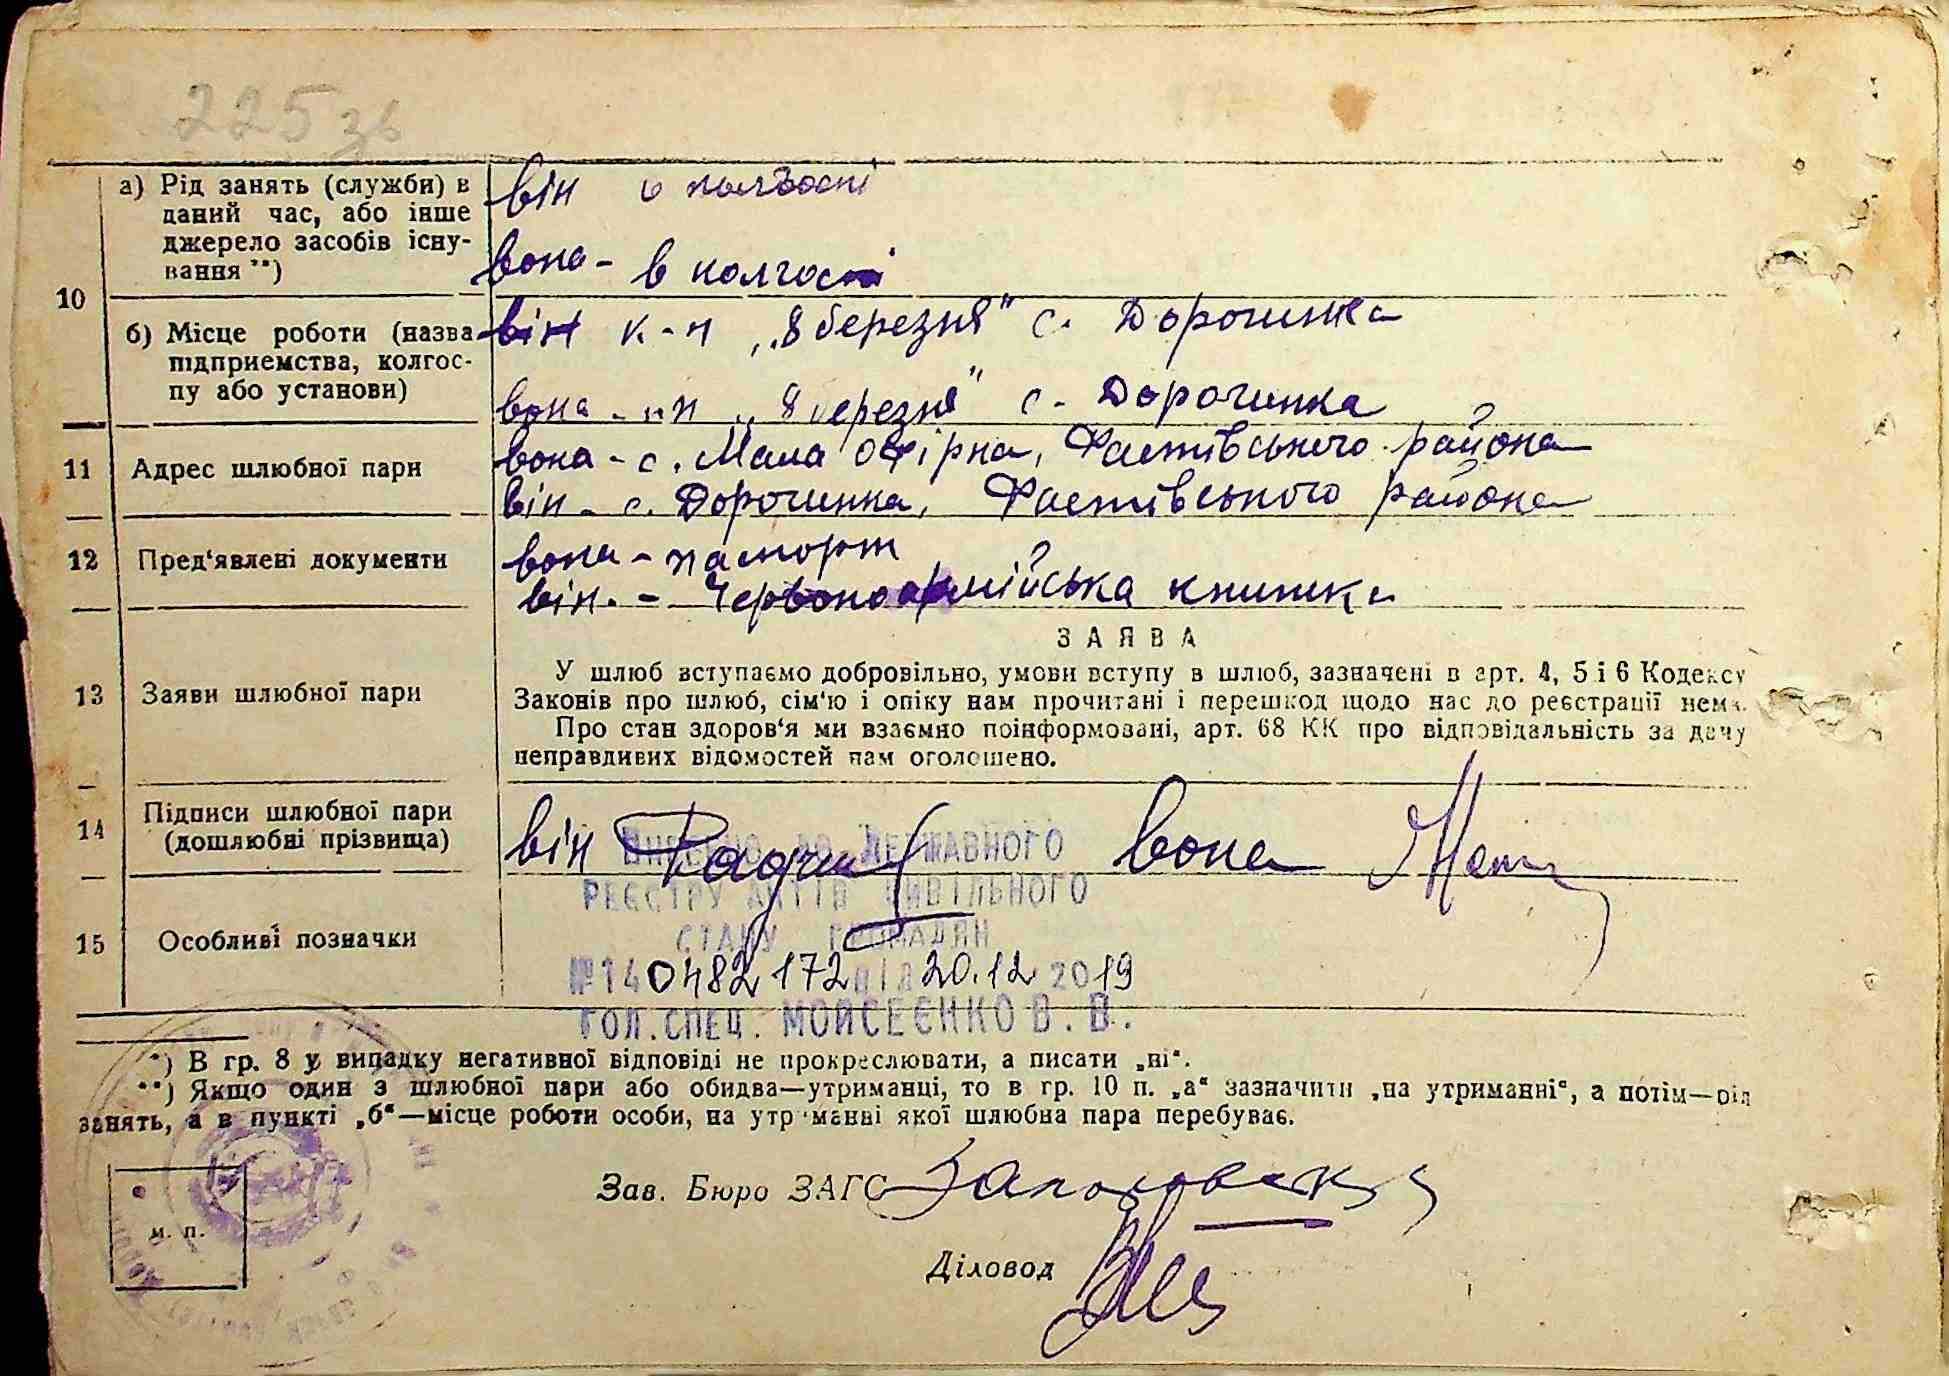 225 зв
10
а) Рід занять (служби) в
даний час, або інше
джерело засобів існу-
вання **)
він в колгоспі
вона - в колгоспі
б) Місце роботи (назва
підприємства, колгос-
пу або установи)
він к-п „8 березня" с. Дорогинка
вона - к-п „8 березня" с. Дорогинка
11 Адрес шлюбної пари
вона - с. Мала Офірна, Фастівського района
він - с. Дорогинка, Фастівського района
12 Пред'явлені документи
вона - паспорт
він. - Червоноармійська книжка
13 Заяви шлюбної пари
ЗАЯВА
У шлюб вступаємо добровільно, умови вступу в шлюб, зазначені в арт. 4, 5 і 6 Кодексу
Законів про шлюб, сім'ю і опіку нам прочитані і перешкод щодо нас до реєстрації нема.
Про стан здоров'я ми взаємно поінформовані, арт. 68 КК про відповідальність за дачу
неправдивих відомостей нам оголошено.
14 Підписи шлюбної пари
(дошлюбні прізвища)
він вона
15 Особливі позначки
Внесено до Державного
реєстру актів цивільного
стану громадян
№140482172 від 20.12 2019
Гол. спец. Мойсеєнко В. В.
*) В гр. 8 у випадку негативної відповіді не прокреслювати, а писати „ні".
**) Якщо один з шлюбної пари або обидва—утриманці, то в гр. 10 п. „а" зазначити „на утриманні", а потім—рід
занять, а в пункті „б"—місце роботи особи, на утриманні якої шлюбна пара перебуває.
м. п.
Зав. Бюро ЗАГС
Діловод